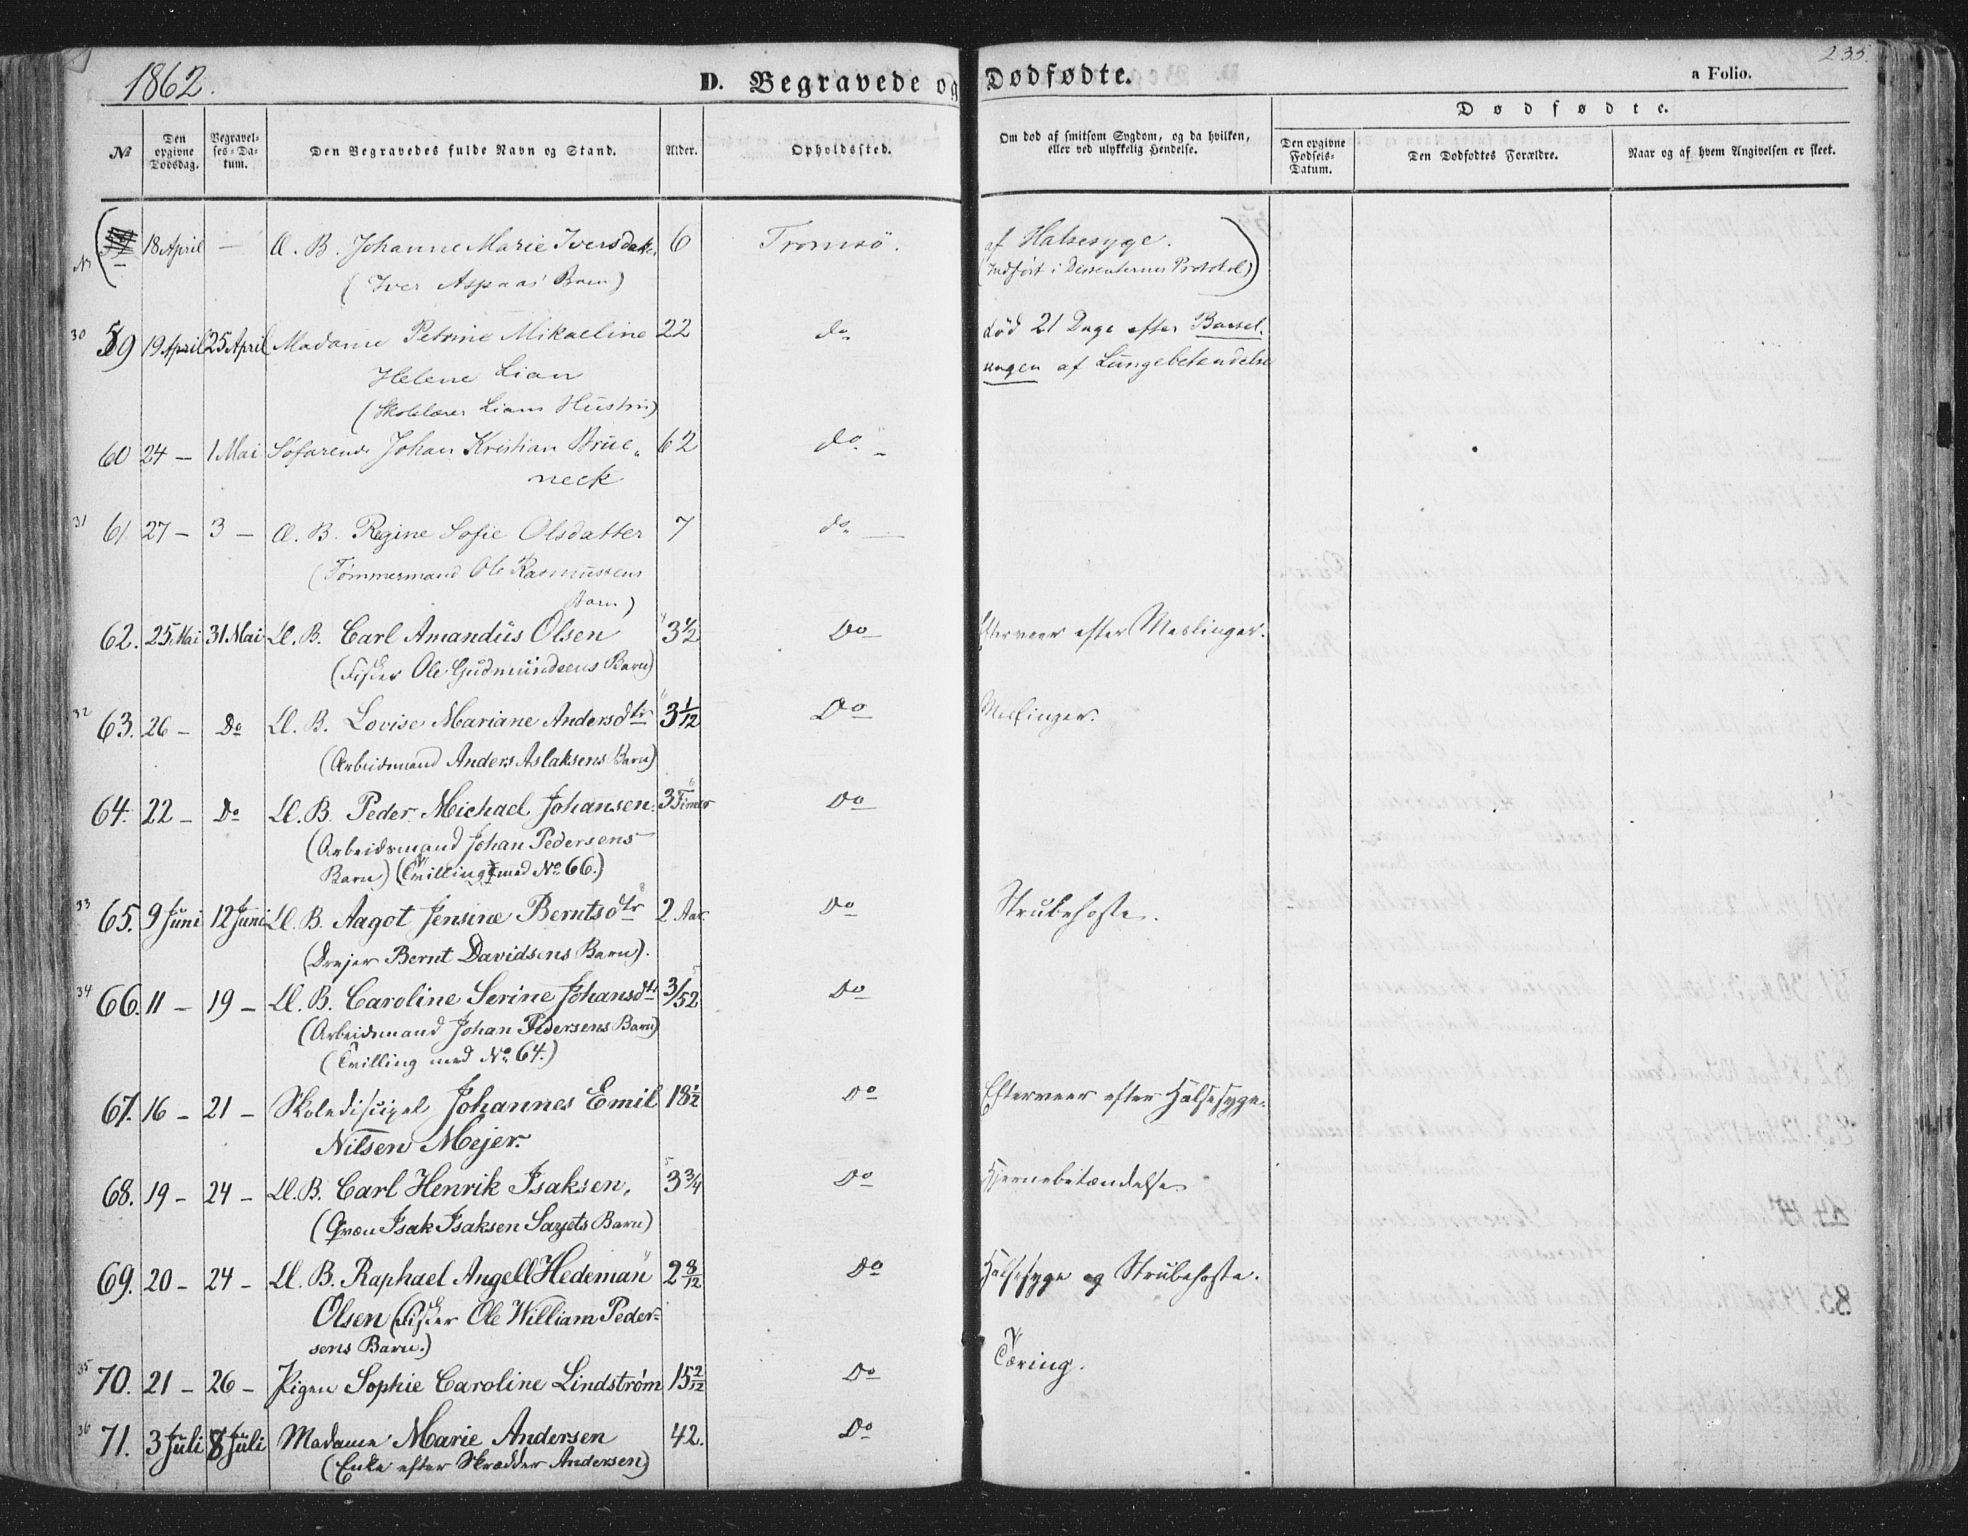 1862.
D. Begravede og Dødfødte.
a Folio.
235.
No
Den opgivne Dødsdag.
Begravelses-Datum.
Den Begravedes fulde Navn og Stand.
Alder.
Opholdssted.
Om død af smitsom Sygdom, og da hvilken, eller ved ulykkelig Hendelse.
Dødfødte.
Den opgivne Fødsels-Datum.
Den Dødfødtes Forældre.
Naar og af hvem Angivelsen er skeet.
18 April — Æ. B. Johanne Marie Iversdatr. 6 Tromsø. af Halsesyge.
(Iver Aspaas' Barn) (Indført i Dissenternes Protokol)
30 59 19 April 25 April Madame Petrine Mikaeline 22 do død 21 Dage efter Barsel-
Helene Lian ungen af Lungebetendelse
(Skolelærer Lians Hustru)
60 24 — 1 Mai Søfarende Johan Kristian Brue 62 do.
neck
31 61. 27 — 3 — Æ. B. Regine Sofie Olsdatter 7 do
(Tømmermand Ole Rasmussens
Barn)
62. 25 Mai 31 Mai U. B. Carl Amandus Olsen 3½ Do Efterveer efter Meslinger.
(Fisker Ole Gudmundsens Barn)
32 63. 26 — Do U. B. Lovise Mariane Andersdtr 3 1/12 Do Meslinger.
(Arbeidsmand Anders Aslaksens Barn)
64. 22 — Do U. B. Peder Michael Johansen. 3 Timer Do
(Arbeidsmand Johan Pedersens
Barn) (Tvilling med No 66.)
33 65. 9 Juni 12 Juni U. B. Aagot Jensine Berntsdtr 2 Aar Do Strubehoste.
(Drejer Bernt Davidsens Barn).
34 66. 11 — 19 — U. B. Caroline Serine Johansdtr 3/52 Do
(Arbeidsmand Johan Pedersens Barn)
(Tvilling med No 64.)
67. 16 — 21 — Skolediscipel Johannes Emil 18½ Do Efterveer efter Halsesyge.
Nilsen Mejer.
68. 19 — 24 — U. B. Carl Henrik Isaksen, 3¾ Do Hjernebetændelse
(Qvæn Isak Isaksen Sayets Barn)
69. 20 — 24 — U. B. Raphael Angell Hedeman 2 8/12 Do Halsesyge og Strubehoste.
Olsen (Fisker Ole William Peder-
sens Barn.)
35 70. 21 — 26 — Pigen Sophie Caroline Lindstrøm 15 2/12 Do Tæring.
36 71. 3 Juli 8 Juli Madame Marie Andersen 42. Do
(Enke efter Skrædder Andersen)